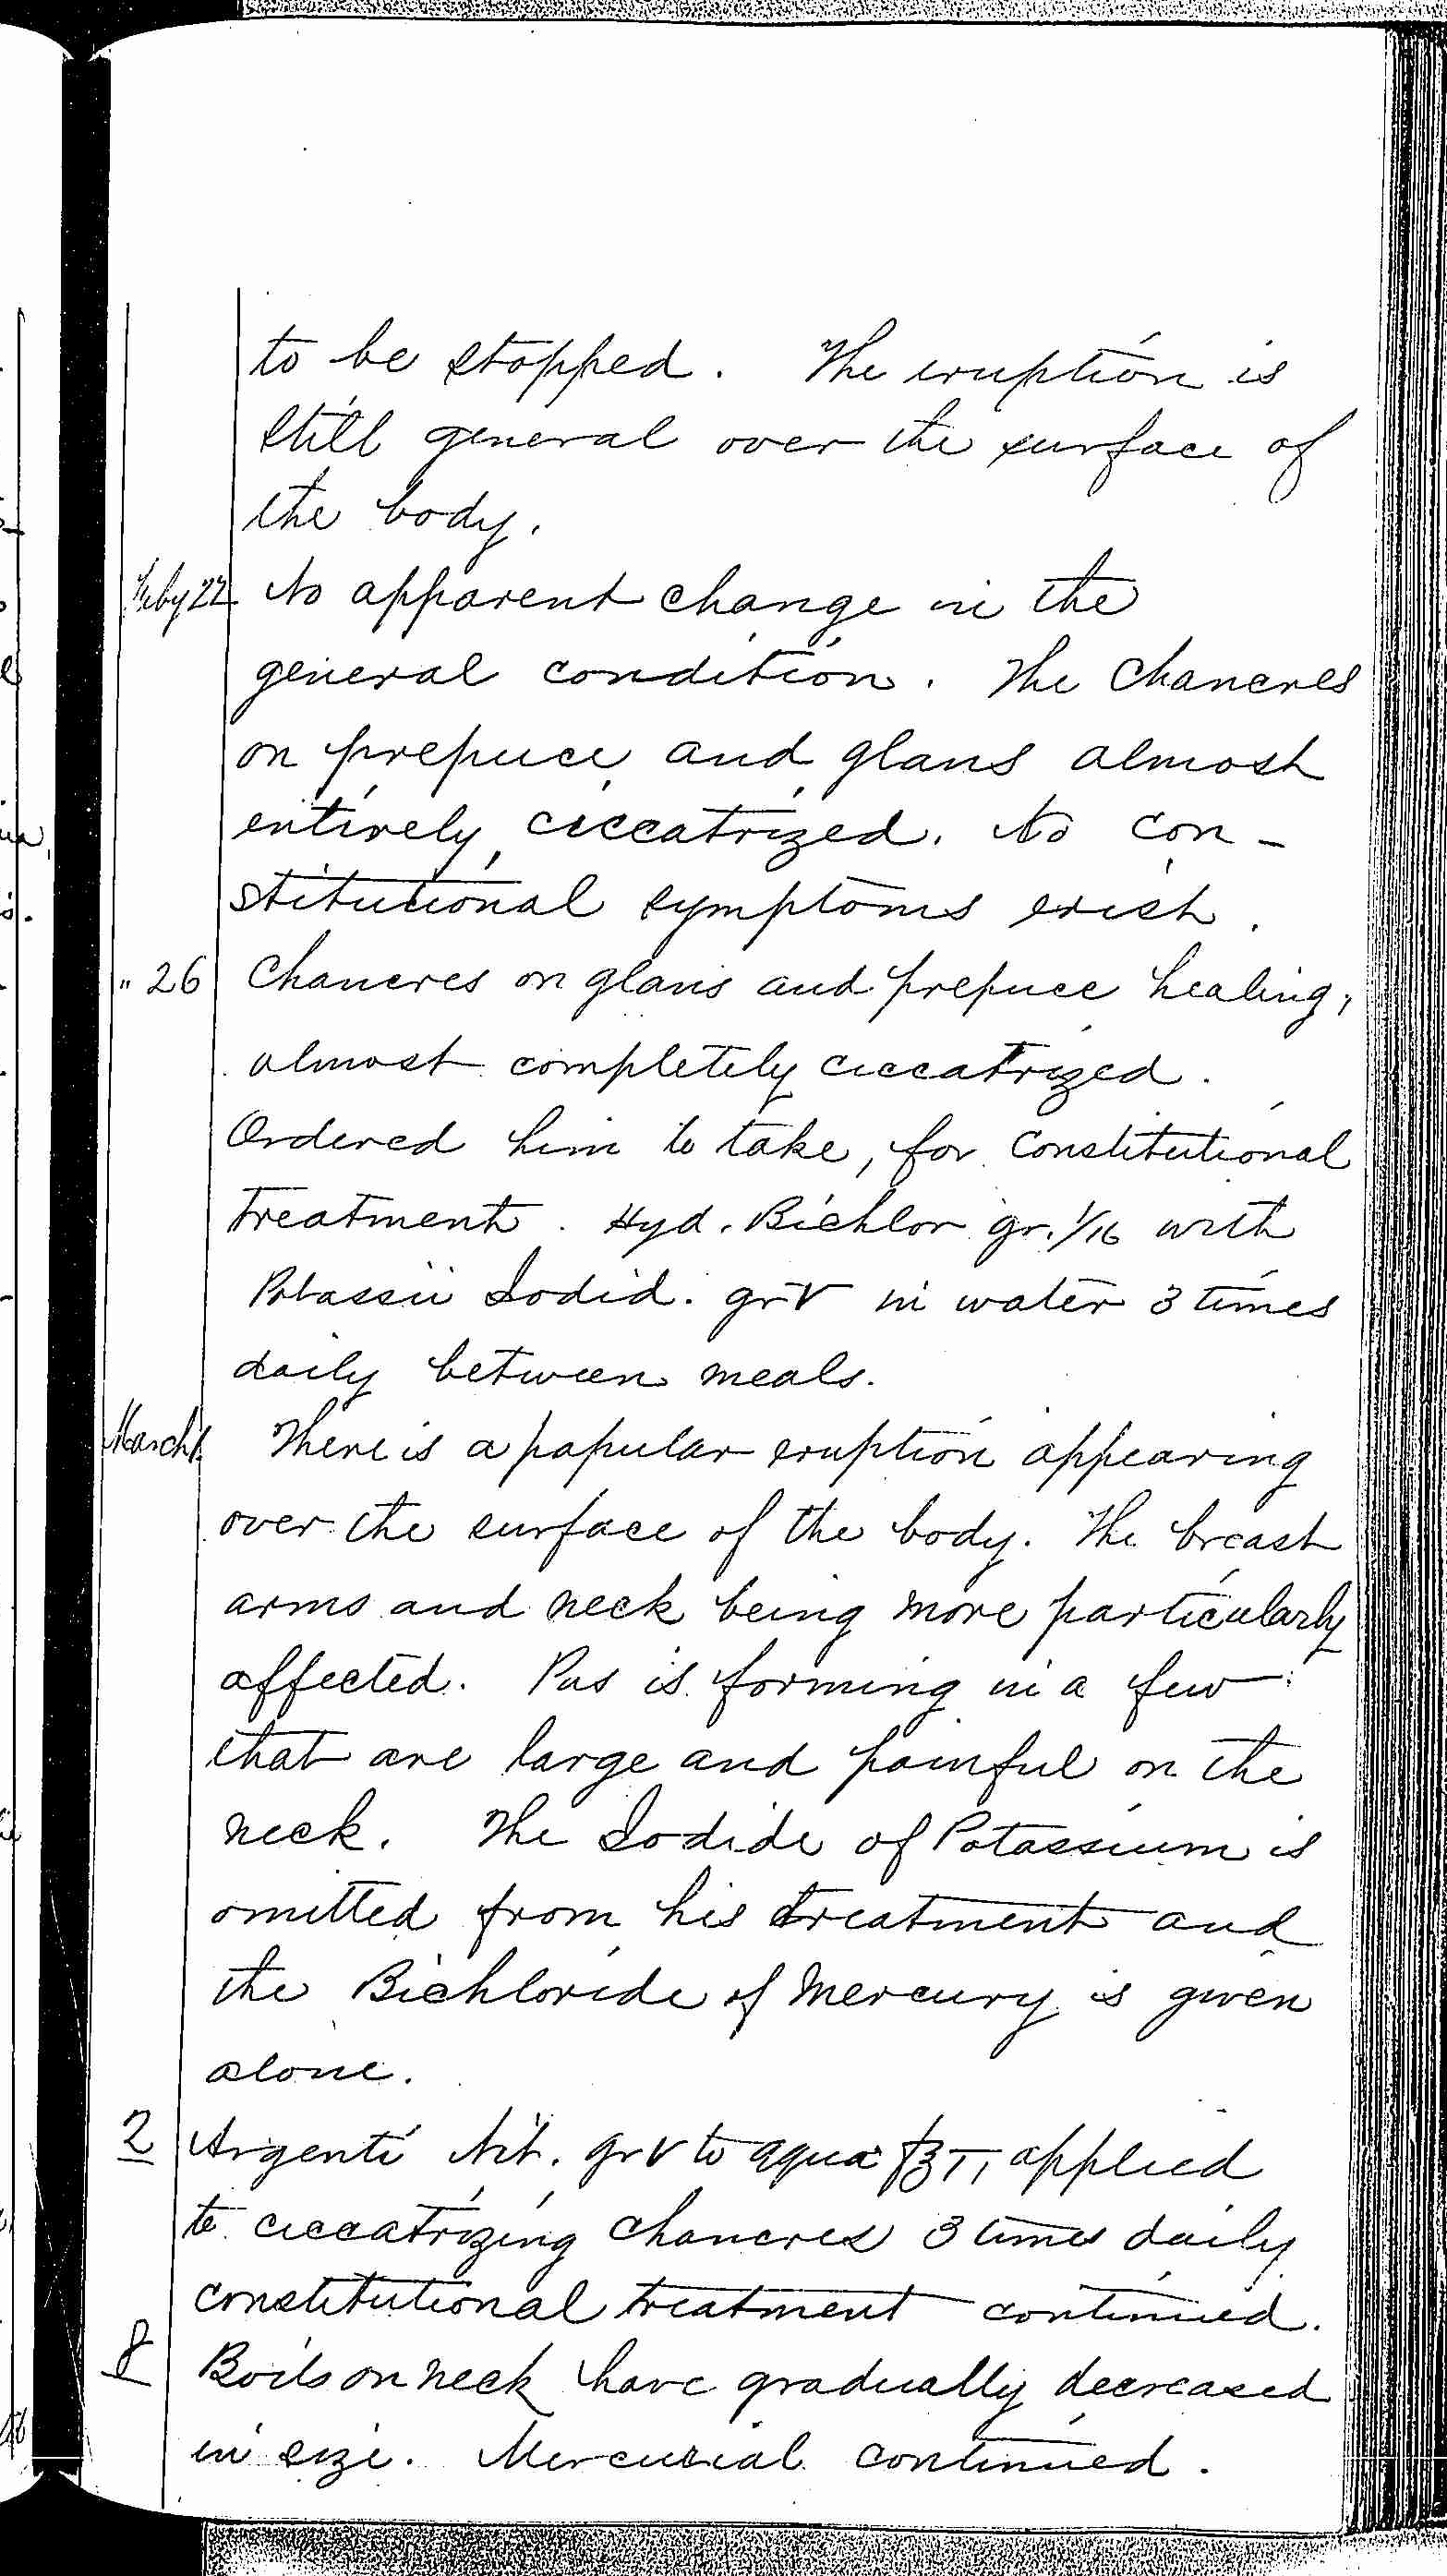 to be stopped. The eruption is
still general over the surface of
the body.
Feby 22 No apparent change in the
general condition. The Chancres
on prepuce and glans almost
entirely ciccatrized. No con-
stitutional symptoms exist.
" 26 Chancres on glans and prepuce healing,
almost completely ciccatrized.
Ordered him to take, for constitutional
treatment. Hyd. Bichlor gr. 1/16 with
Potassii Iodid. gr V in water 3 times
daily between meals.
March 1. There is a papular eruption appearing
over the surface of the body. The breast
arms and neck being more particularly
affected. Pus is forming in a few
that are large and painful on the
neck. The Iodide of Potassium is
omitted from his treatment and
the Bichloride of Mercury is given
alone.
2 Argenti Nit. gr V to aqua f℥ T, applied
to ciccatrizing chancres 3 times daily
constitutional treatment continued.
8 Boils on neck have gradually decreased
in size. Mercurial continued.